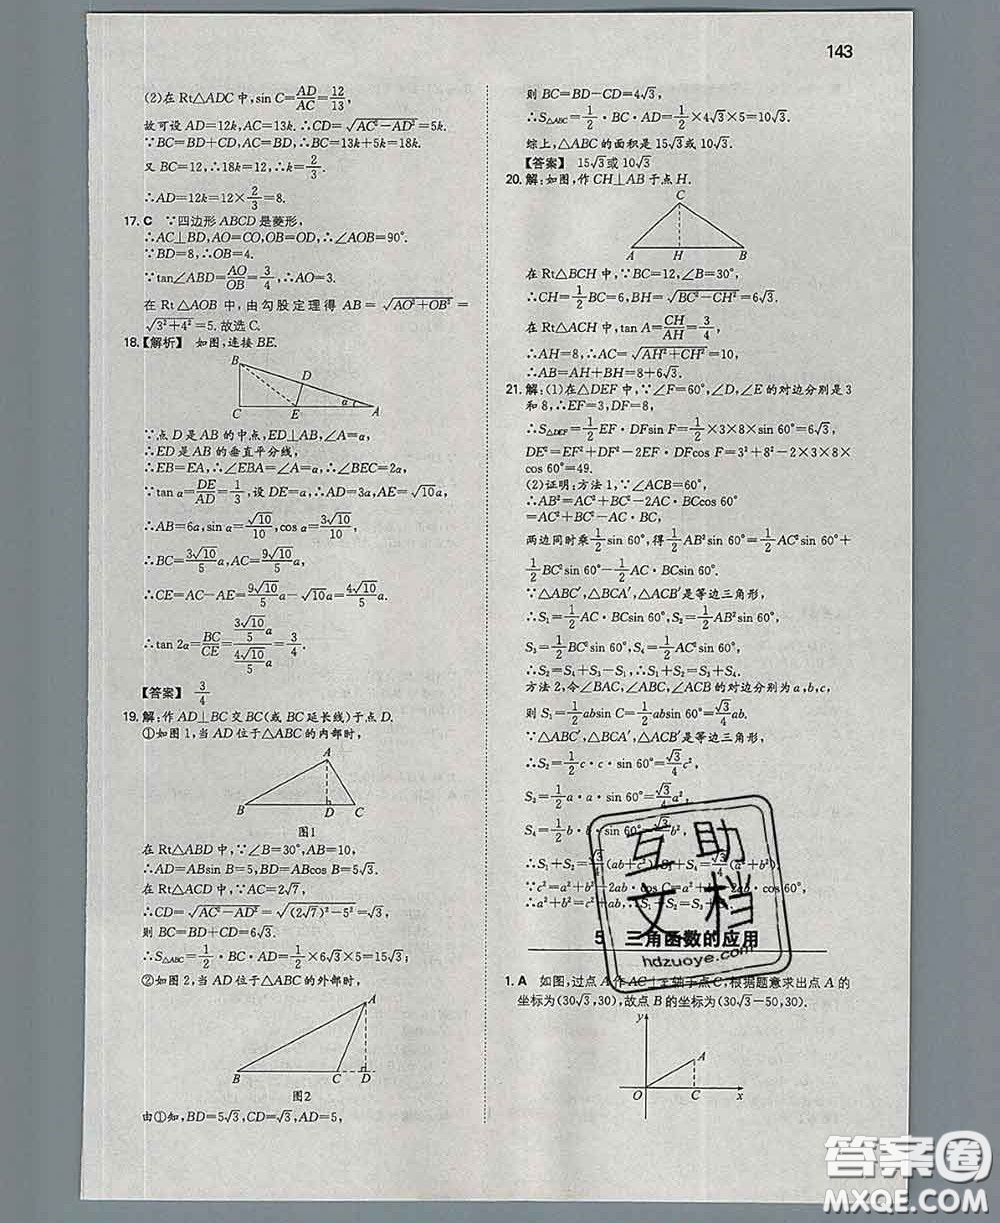 143
(2)在 Rt△ADC 中,sin C=AD/AC=12/13,
故可设 AD=12k,AC=13k.∴CD=√(AC²-AD²)=5k.
∵BC=BD+CD,AC=BD,∴BC=13k+5k=18k.
又 BC=12,∴18k=12,∴k=2/3.
∴AD=12k=12×2/3=8.
17. C ∵四边形 ABCD 是菱形,
∴AC⊥BD,AO=CO,OB=OD,∴∠AOB=90°.
∵BD=8,∴OB=4.
∵tan∠ABD=AO/OB=3/4,∴AO=3.
在 Rt△AOB 中,由勾股定理得 AB=√(AO²+OB²)=
√(3²+4²)=5.故选 C.
18.【解析】 如图,连接 BE.
B
D
C
E
α
A
∵点 D 是 AB 的中点,ED⊥AB,∠A=α,
∴ED 是 AB 的垂直平分线,
∴EB=EA,∴∠EBA=∠A=α,∴∠BEC=2α,
∵tan α=DE/AD=1/3,设 DE=a,∴AD=3a,AE=√10a,
∴AB=6a,sin α=√10/10,cos α=3√10/10,
∴BC=3√10/5a,AC=9√10/5a,
∴CE=AC-AE=9√10/5a-√10a=4√10/5a,
∴tan 2α=BC/CE=(3√10/5a)/(4√10/5a)=3/4.
【答案】 3/4
19. 解:作 AD⊥BC 交 BC(或 BC 延长线)于点 D.
①如图 1,当 AD 位于△ABC 的内部时,
A
B
D
C
图1
在 Rt△ABD 中,∵∠B=30°,AB=10,
∴AD=ABsin B=5,BD=ABcos B=5√3.
在 Rt△ACD 中,∵AC=2√7,
∴CD=√(AC²-AD²)=√((2√7)²-5²)=√3,
则 BC=BD+CD=6√3.
∴S△ABC=1/2·BC·AD=1/2×6√3×5=15√3;
②如图 2,当 AD 位于△ABC 的外部时,
A
B
C
D
图2
由①知,BD=5√3,CD=√3,AD=5,
则 BC=BD-CD=4√3,
∴S△ABC=1/2·BC·AD=1/2×4√3×5=10√3.
综上,△ABC 的面积是 15√3或 10√3.
【答案】 15√3或 10√3
20. 解:如图,作 CH⊥AB 于点 H.
C
A
H
B
在 Rt△BCH 中,∵BC=12,∠B=30°,
∴CH=1/2BC=6,BH=√(BC²-CH²)=6√3.
在 Rt△ACH 中,tan A=CH/AH=3/4,
∴AH=8,∴AC=√(AH²+CH²)=10.
∴AB=AH+BH=8+6√3.
21. 解:(1)在△DEF 中,∵∠F=60°,∠D,∠E 的对边分别是 3
和 8,∴EF=3,DF=8,
∴S△DEF=1/2EF·DFsin F=1/2×3×8×sin 60°=6√3,
DE²=EF²+DF²-2EF·DFcos F=3²+8²-2×3×8×
cos 60°=49.
(2)证明:方法 1,∵∠ACB=60°,
∴AB²=AC²+BC²-2AC·BCcos 60°
=AC²+BC²-AC·BC,
两边同时乘1/2sin 60°,得1/2AB²sin 60°=1/2AC²sin 60°+
1/2BC²sin 60°-1/2AC·BCsin 60°,
∵△ABC′,△BCA′,△ACB′是等边三角形,
∴S₁=1/2AC·BCsin 60°,S₂=1/2AB²sin 60°,
S₃=1/2BC²sin 60°,S₄=1/2AC²sin 60°,
∴S₂=S₄+S₃-S₁,∴S₁+S₂=S₃+S₄.
方法 2,令∠BAC,∠ABC,∠ACB 的对边分别为 a,b,c,
则 S₁=1/2absin C=1/2absin 60°=√3/4ab.
∵△ABC′,△BCA′,△ACB′是等边三角形,
∴S₂=1/2c·c·sin 60°=√3/4c²,
S₃=1/2a·a·sin 60°=√3/4a²,
S₄=1/2b·b·sin 60°=√3/4b²,
∴S₁+S₂=√3/4(ab+c²),S₃+S₄=√3/4(a²+b²),
∵c²=a²+b²-2ab·cos C=a²+b²-2ab·cos 60°,
∴a²+b²=c²+ab,∴S₁+S₂=S₃+S₄.
5 三角函数的应用
1. A 如图,过点 A 作 AC⊥x 轴于点 C,根据题意求出点 A 的
坐标为(30√3,30),故点 B 的坐标为(30√3-50,30).
y
A
O
C
x
互助
文档
hdzuoye.com
答案圈
MXQE.COM